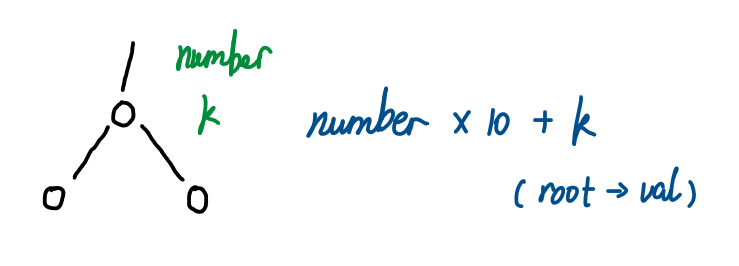 number
k
number × 10 + k
(root → val)